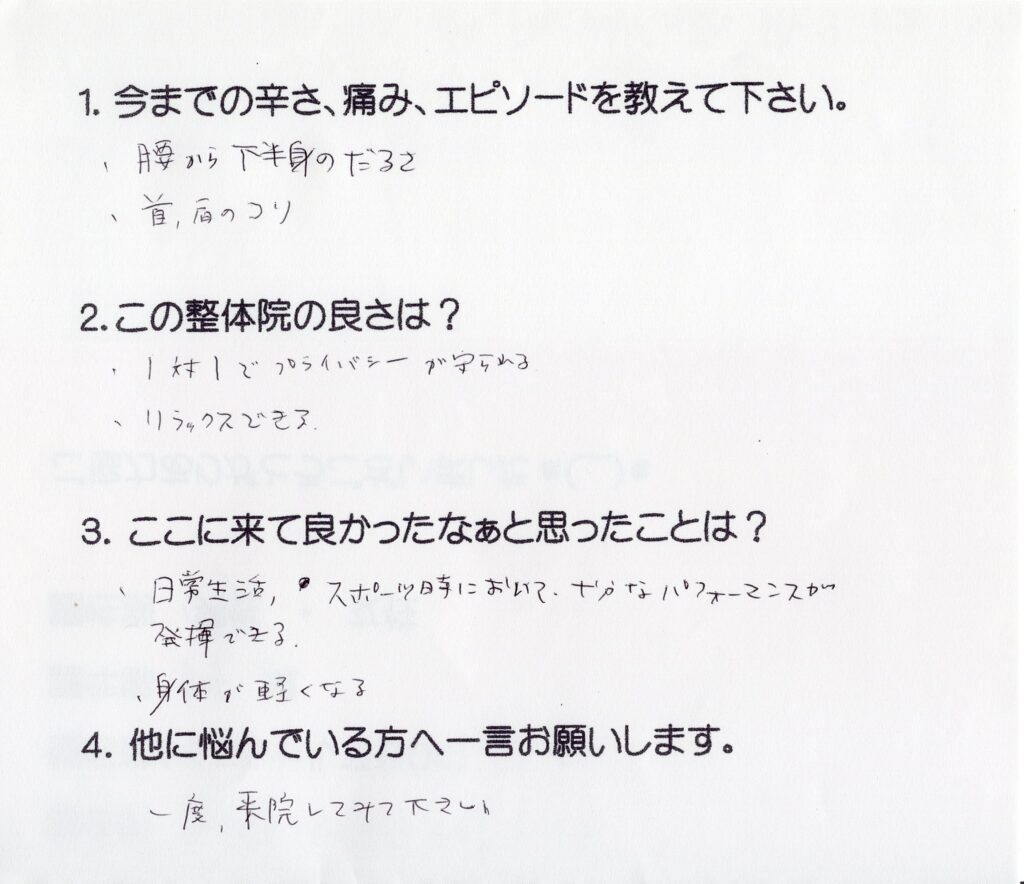 1. 今までの辛さ、痛み、エピソードを教えて下さい。
、腰から下半身のだるさ
、首,肩のコリ
2.この整体院の良さは？
、1対1でプライバシーが守られる
、リラックスできる.
3. ここに来て良かったなぁと思ったことは？
、日常生活,スポーツ時において、十分なパフォーマンスが
発揮できる.
、身体が軽くなる
4. 他に悩んでいる方へ一言お願いします。
一度,来院してみて下さい